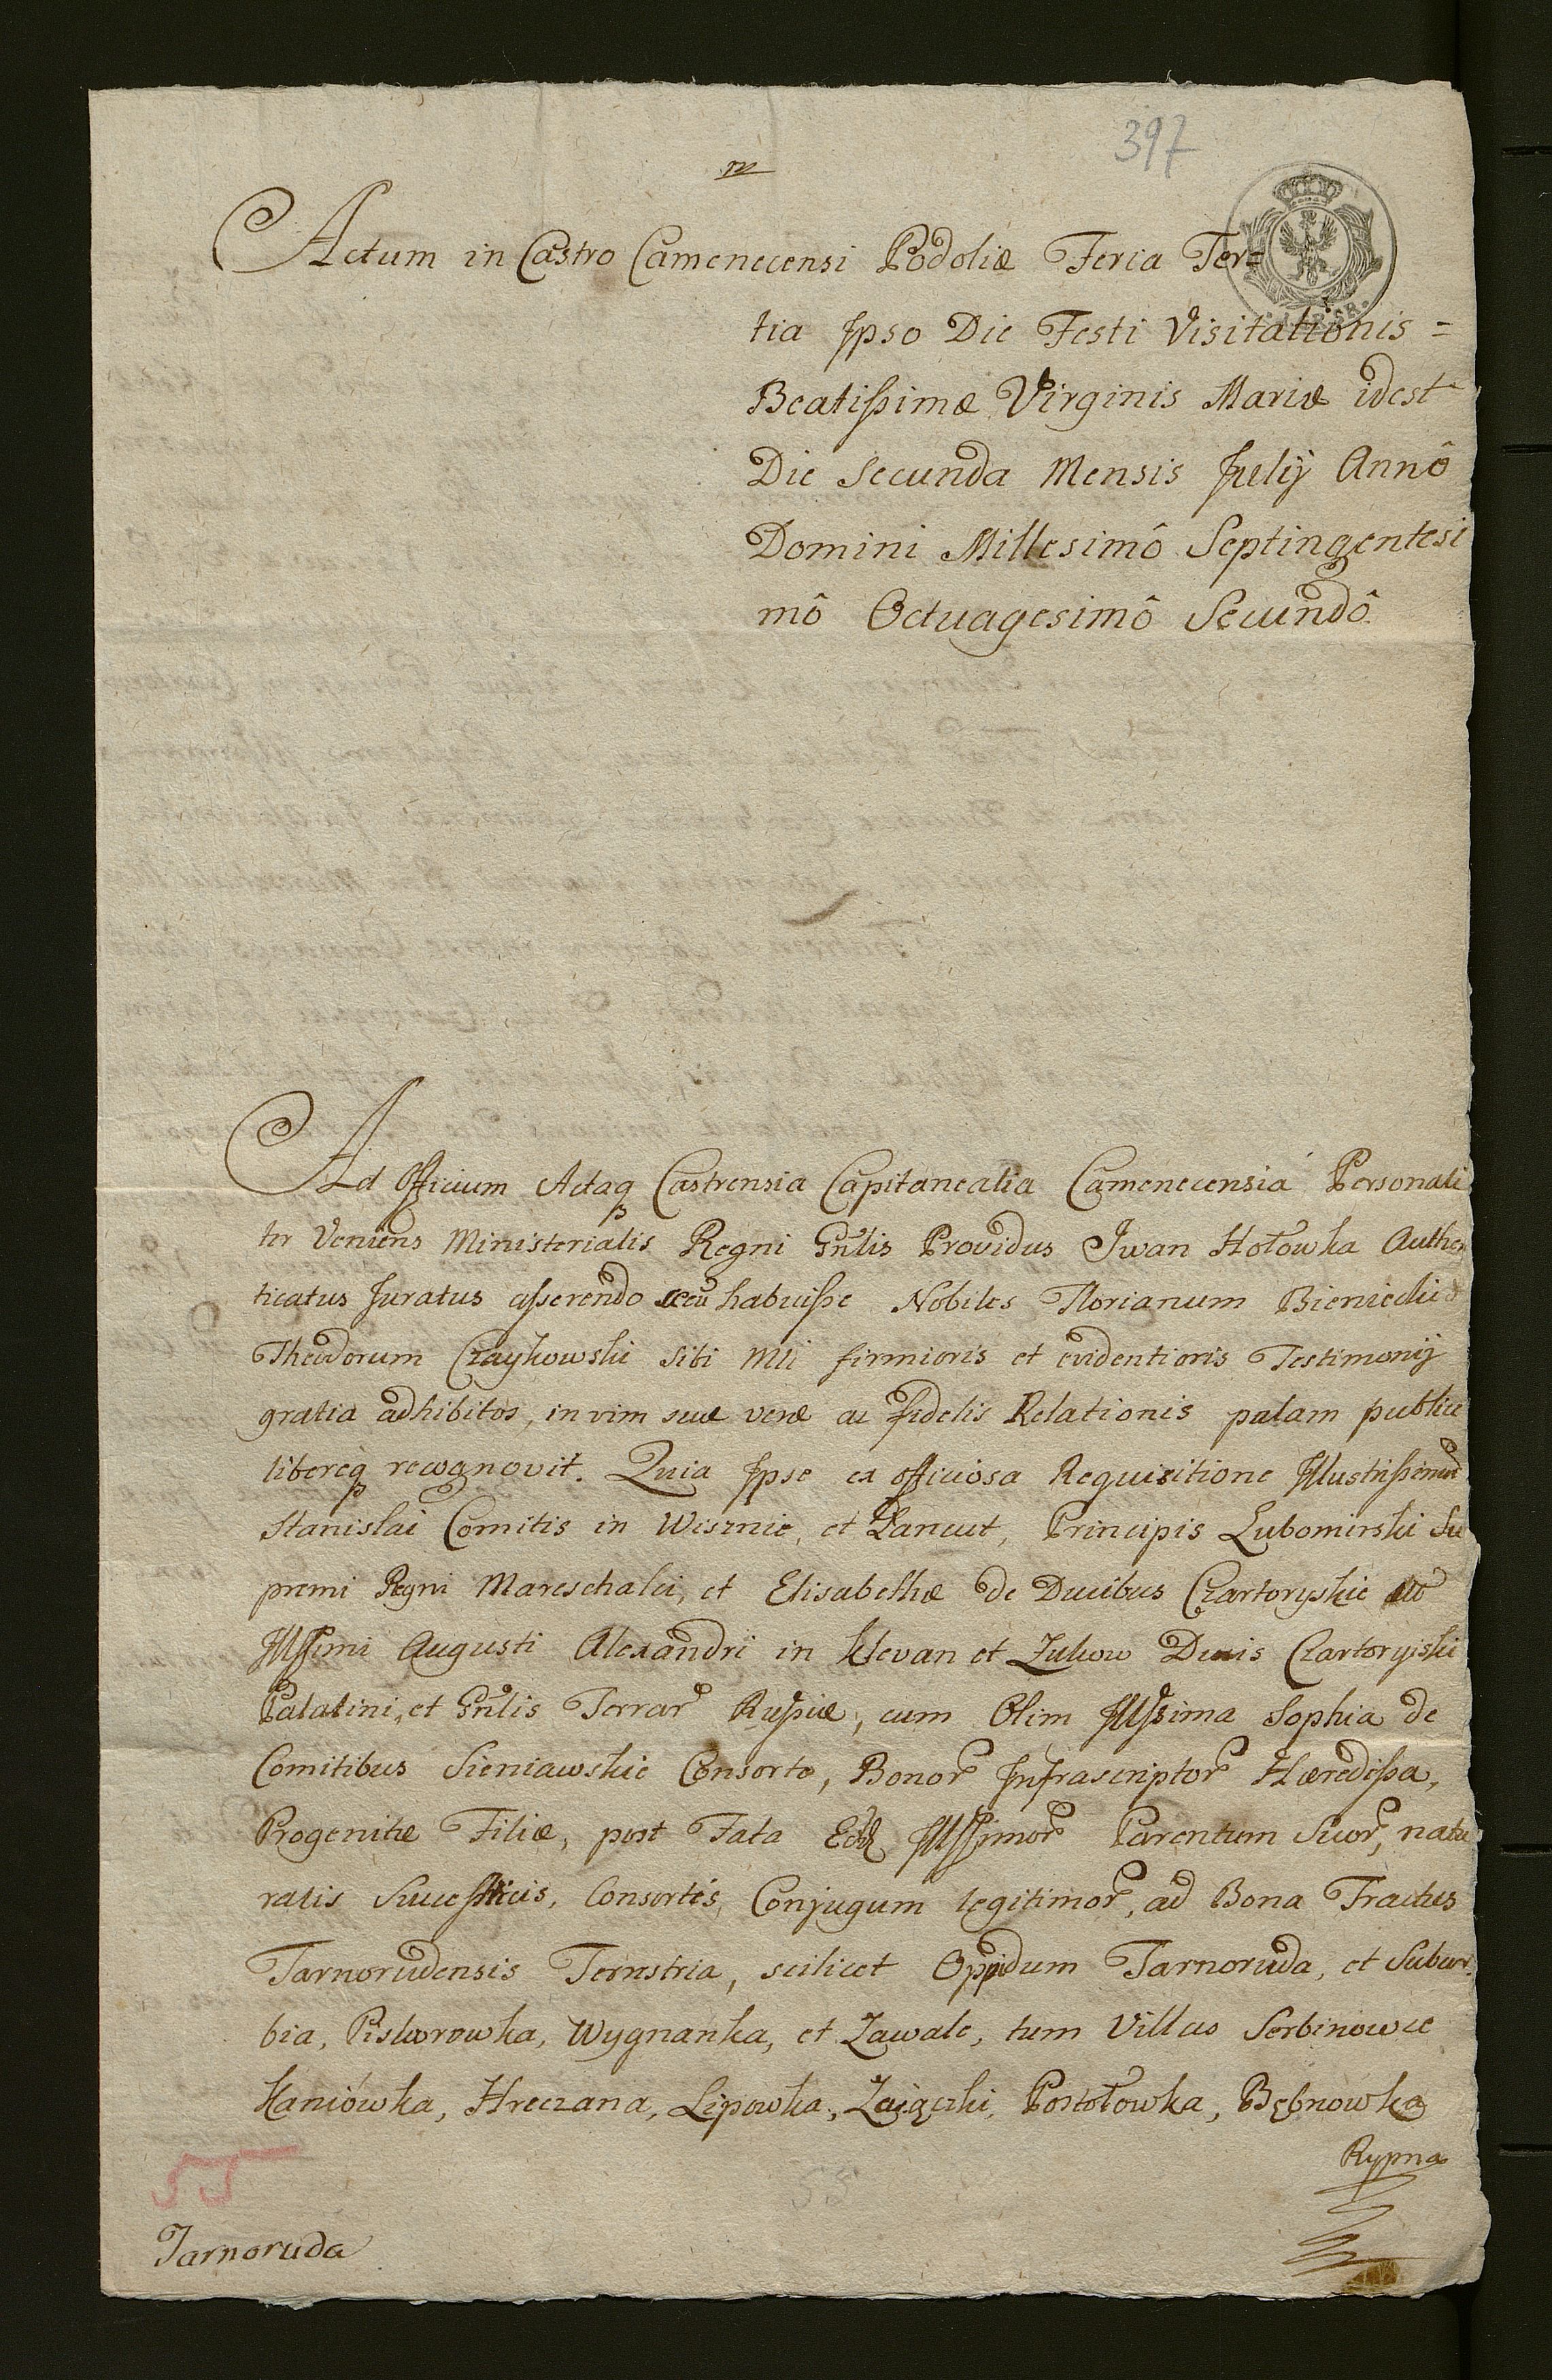 397
Actum in Castro Camenecensi Podoliæ Feria Ter=
tia Ipso Die Festi Visitationis =
Beatißimæ Virginis Mariæ idest
Die Secunda Mensis Julij Annô
Domini Millesimô Septingentesi
mô Octuagesimô Secundô
Ad Officium Actaq Castrensia Capitanealia Camenecensia Personali
ter Veniens Ministerialis Regni Gnlis Providus Iwan Hołowka Authen
ticatus Juratus aßerendo secu habuiße Nobiles Florianum Bieniecki &
Theodorum Czaykowski sibi Mli firmioris et evidentioris Testimonij
gratia adhibitos, in vim suæ veræ ac fidelis Relationis palam publice
libereq recognovit. Quia Ipse ex officiosa Requisitione Illustrißimor
Stanislai Comitis in Wisznic, et Łancut, Principis Lubomirski Su
premi Regni Mareschalci, et Elisabethæ de Ducibus Czartoryskie
Illßimi Augusti Alexandri in Klevan et Zukow Ducis Czartoryiski
Palatini, et Gnlis Terrar Rußiæ, cum Olim Illßima Sophia de
Comitibus Sieniawskie Consorte, Bonor Infrascriptor Hæredißa,
Progenitæ Filiæ, post Fata Illßimor Parentum Suor, natu
ralis Succeßricis, Consortis, Conjugum legitimor, ad Bona Tractus
Tarnorudensis Terrestria, scilicet Oppidum Tarnoruda, et Subur
bia, Piskorowka, Wygnanka, et Zawale, tum Villas Serbinowce
Kaniówka, Hreczana, Lipowka, Zaiączki, Postołowka, Bębnowka
Rypna
55
55
Tarnoruda